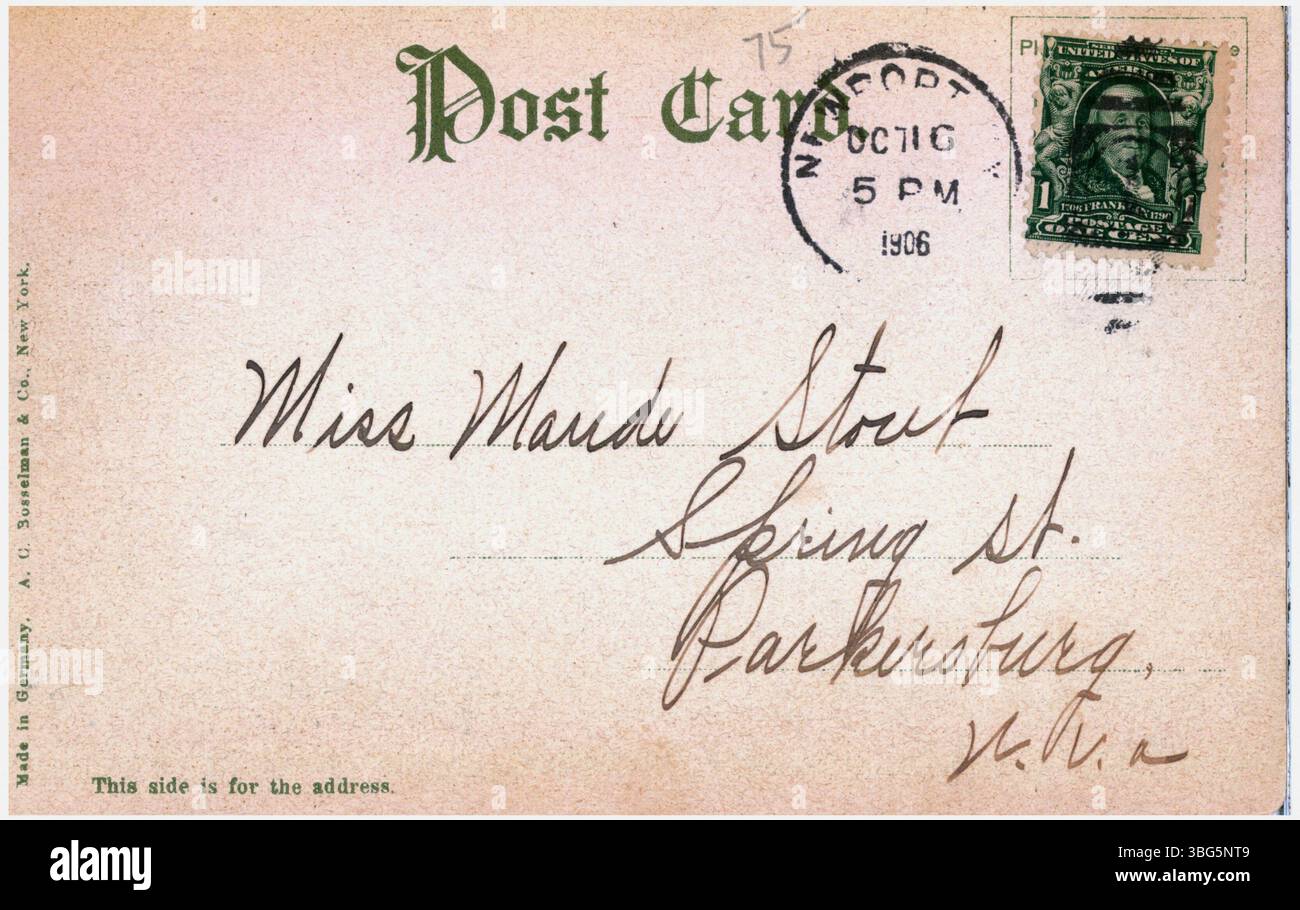 75
Post Card.
NEWPORT
OCT 16
5 PM
1906
SERIES 1902
UNITED STATES OF
AMERICA
1 1
1706 FRANKLIN 1790
POSTAGE
ONE CENT
Miss Maude Stout
Spring St.
Parkersburg,
W. V. a
Made in Germany. A. C. Bosselman & Co., New York.
This side is for the address.
alamy
Image ID: 3BG5NT9
www.alamy.com